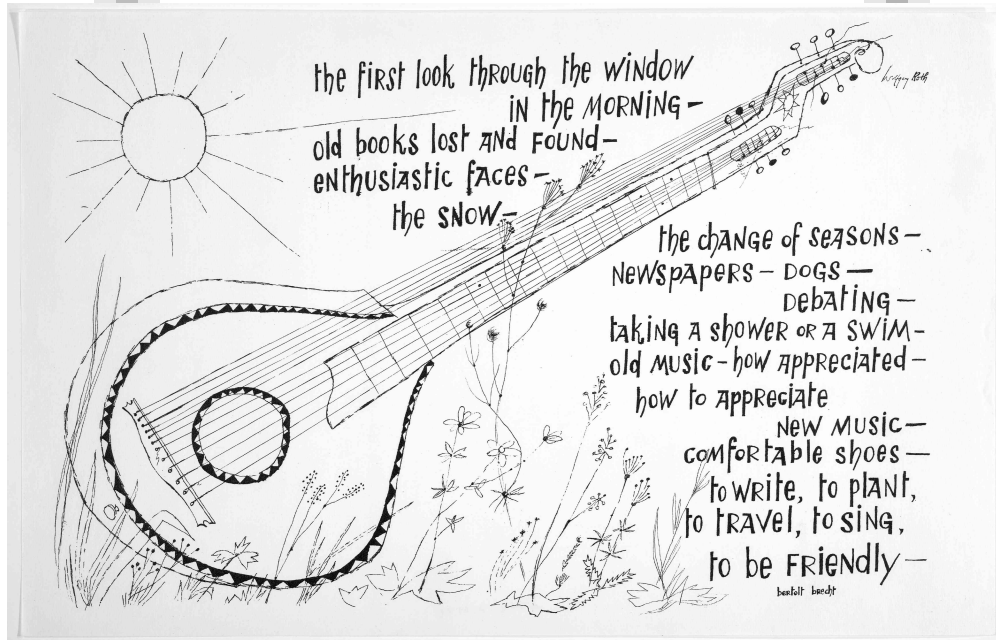 the first look through the window
in the morning—
old books lost and found—
enthusiastic faces—
the snow—
the change of seasons—
newspapers — dogs —
debating—
taking a shower or a swim—
old music — how appreciated—
how to appreciate
new music—
comfortable shoes—
to write, to plant,
to travel, to sing,
to be friendly—
bertolt brecht
Roth